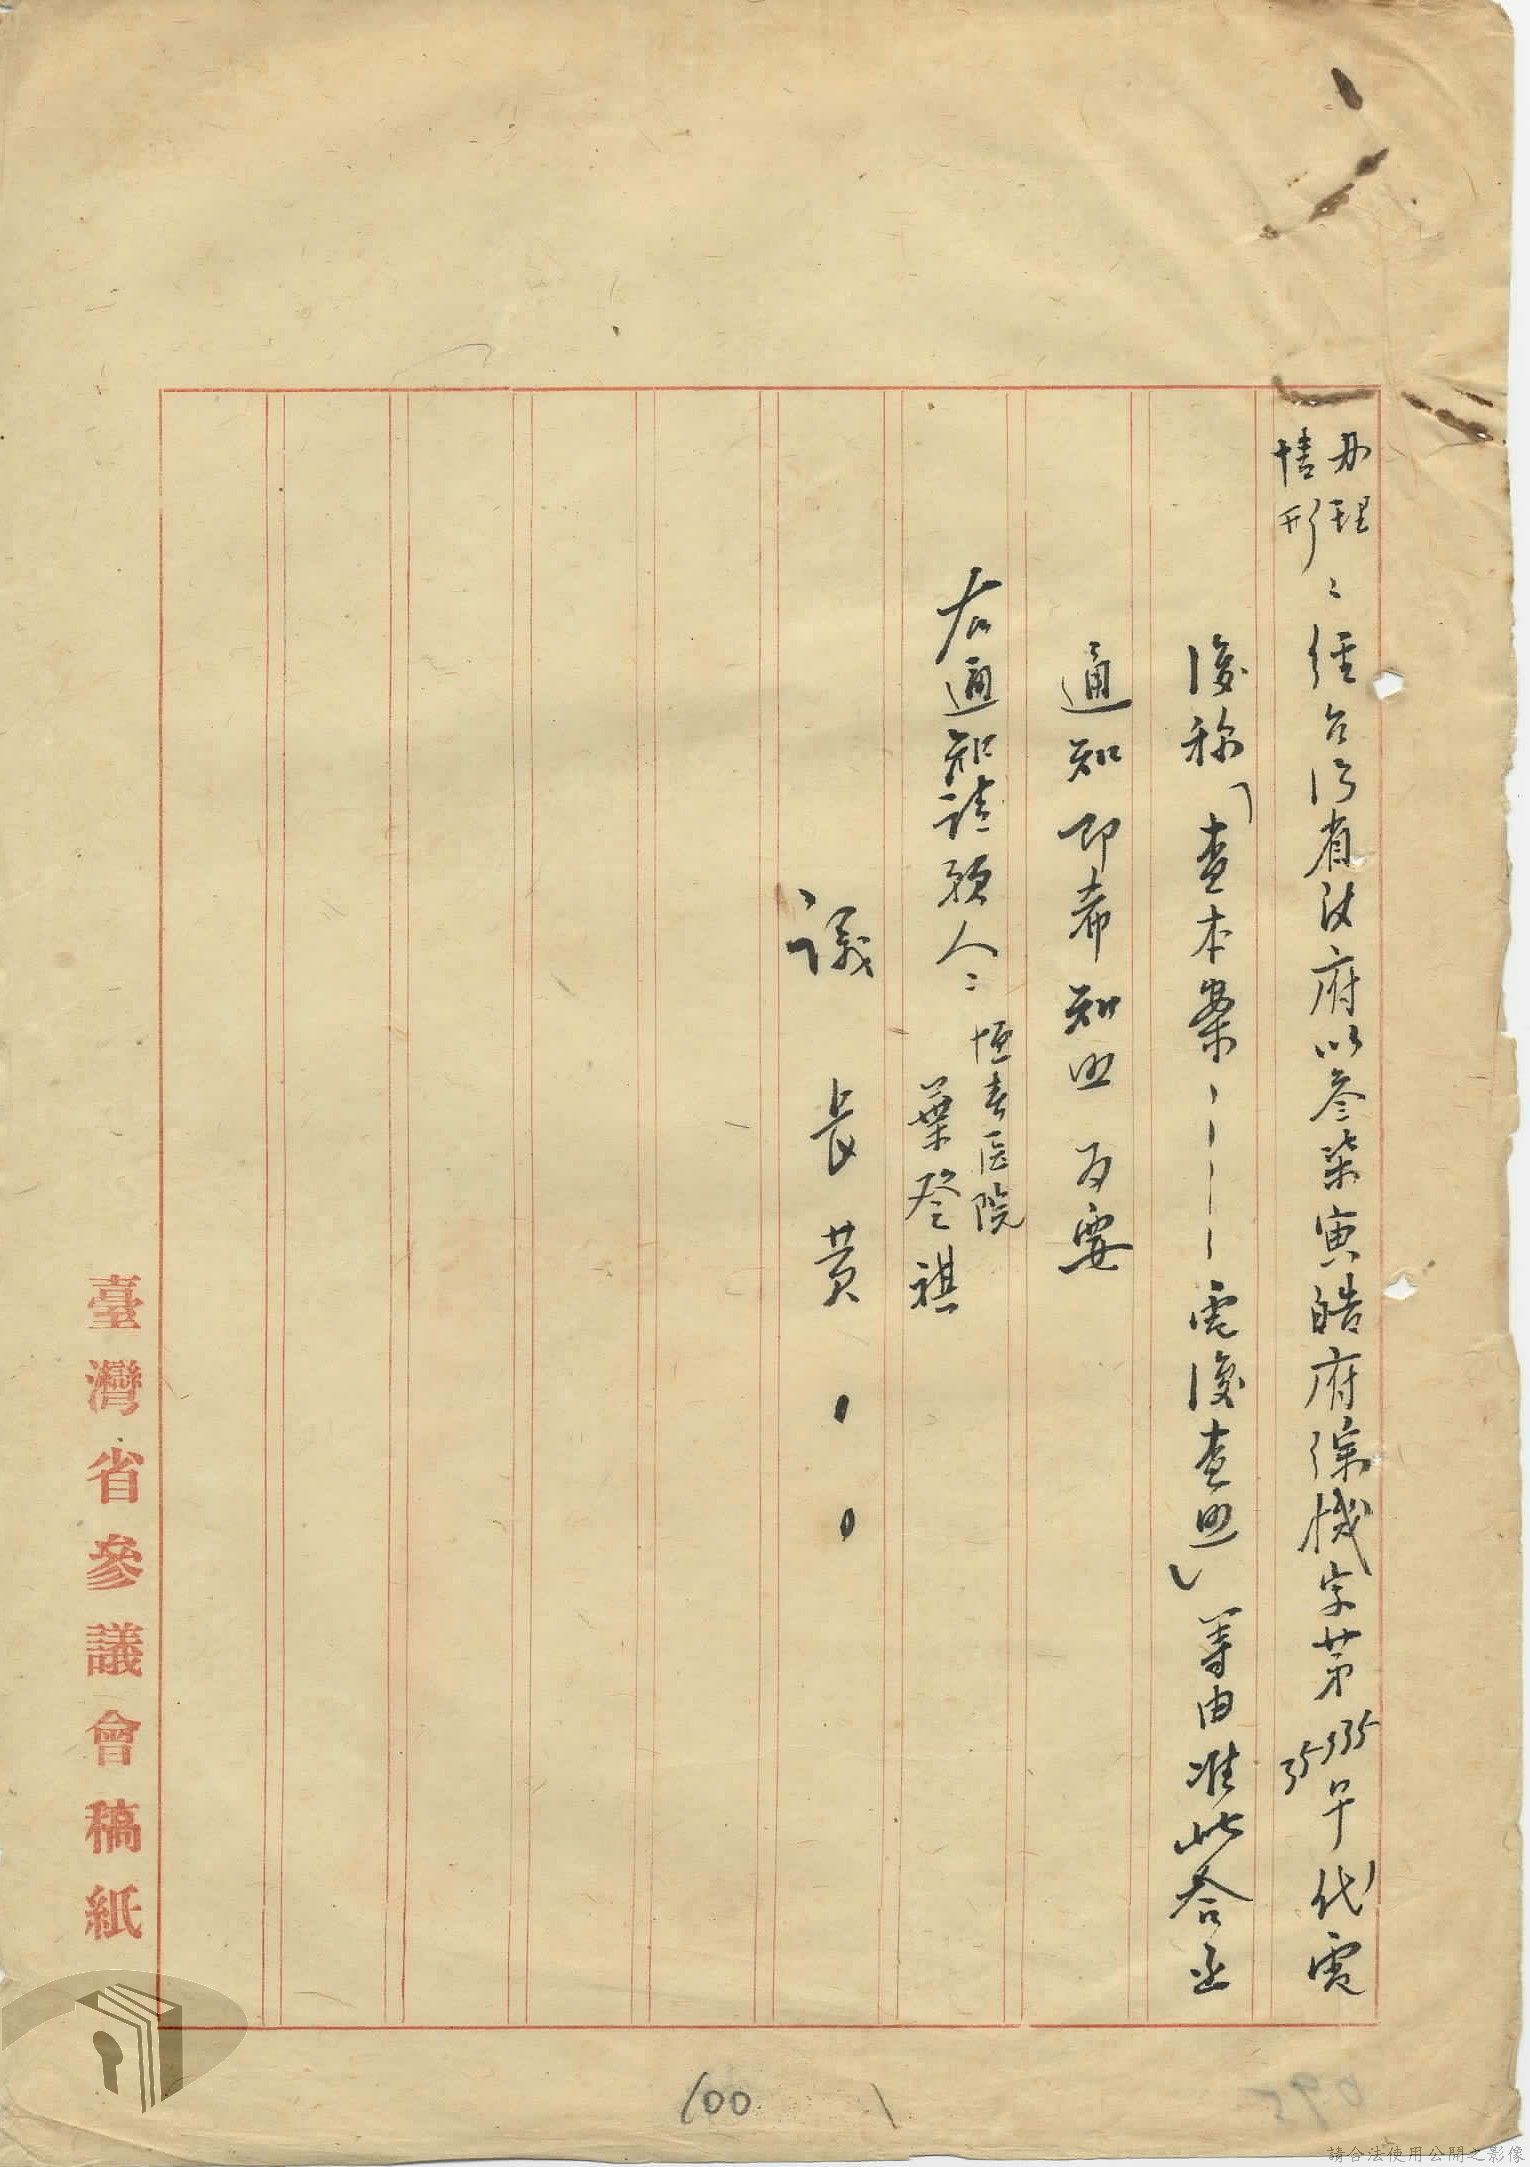 办理
情形：經台灣省政府以參柒寅皓府綜機字第33535号代電
復称「查本案、、、、、電復查照」等由准此合亟
通知即希知照为要
右通知請願人：恒春医院
葉登祺
議長黃、、
臺灣省參議會稿紙
100
095
請合法使用公開之影像